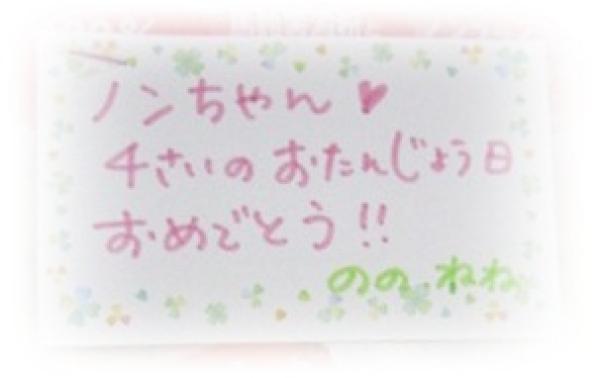 ノンちゃん♥
4さいのおたんじょう日
おめでとう!!
のの、ねね